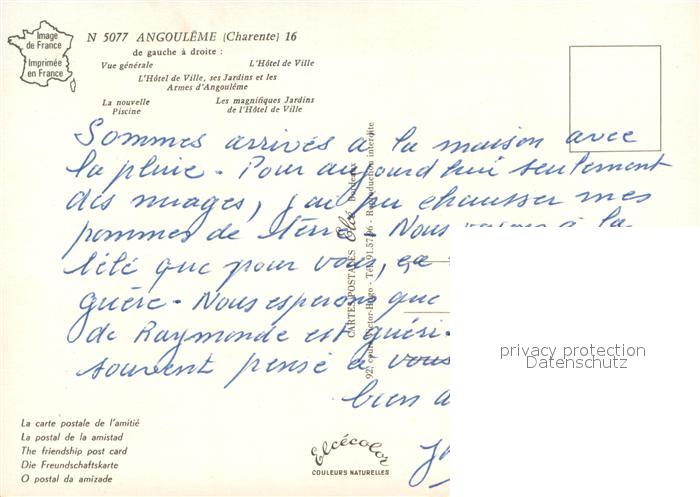 Image
de France
Imprimée
en France
N 5077 ANGOULÊME (Charente) 16
de gauche à droite :
Vue générale L'Hôtel de Ville
L'Hôtel de Ville, ses Jardins et les
Armes d'Angoulême
La nouvelle Les magnifiques Jardins
Piscine de l'Hôtel de Ville
Sommes arrivés à la maison avec
la pluie - Pour aujourd'hui seulement
des nuages, j'ai pu chausser mes
pommes de terre. Nous à la
télé que pour vous, ça
guère - Nous esperons que
de Raymonde est guéri
souvent pensé à vous
bien
CARTES POSTALES Elcé Bordeaux
92, cours Victor-Hugo - Tél. 91.57.46 - Reproduction interdite
privacy protection
Datenschutz
La carte postale de l'amitié
La postal de la amistad
The friendship post card
Die Freundschaftskarte
O postal da amizade
Elcécolor
COULEURS NATURELLES